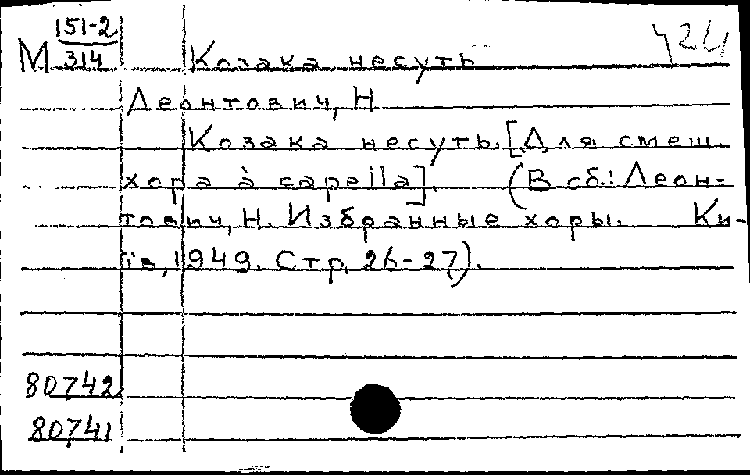 151-2
М 314 Козака несуть
Леонтович, Н
Козака несуть. [Для смеш.
хора à capella]. (В сб.: Леон-
тович, Н. Избранные хоры. Ки-
їв, 1949. Стр. 26-27).
80742
80741